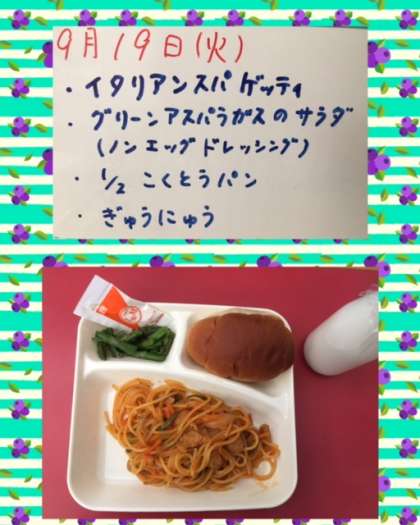 9月19日(火)
・イタリアンスパゲッティ
・グリーンアスパラガスのサラダ
(ノンエッグドレッシング)
・1/2 こくとうパン
・ぎゅうにゅう